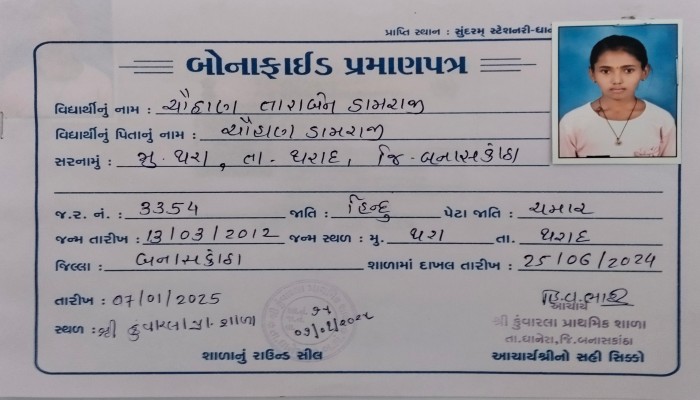 પ્રાપ્તિ સ્થાન : સુંદરમ્ સ્ટેશનરી-ધાન
બોનાફાઈડ પ્રમાણપત્ર
વિદ્યાર્થીનું નામ : ચૌહાણ તારાબેન ડામરાજી
વિદ્યાર્થીનું પિતાનું નામ : ચૌહાણ ડામરાજી
સરનામું : મુ. થરા, તા. થરાદ, જિ. બનાસકાંઠા
જ.ર. નં. : 3354 જાતિ : હિન્દુ પેટા જાતિ : ચમાર
જન્મ તારીખ : 13/03/2012 જન્મ સ્થળ : મુ. થરા તા. થરાદ
જિલ્લા : બનાસકાંઠા શાળામાં દાખલ તારીખ : 25/06/2024
તારીખ : 07/01/2025
સ્થળ : શ્રી કુંવારલા પ્રા. શાળા
આચાર્ય
શ્રી કુંવારલા પ્રાથમિક શાળા
તા.ધાનેરા,જિ.બનાસકાંઠા
શાળાનું રાઉન્ડ સીલ આચાર્યશ્રીનો સહી સિક્કો